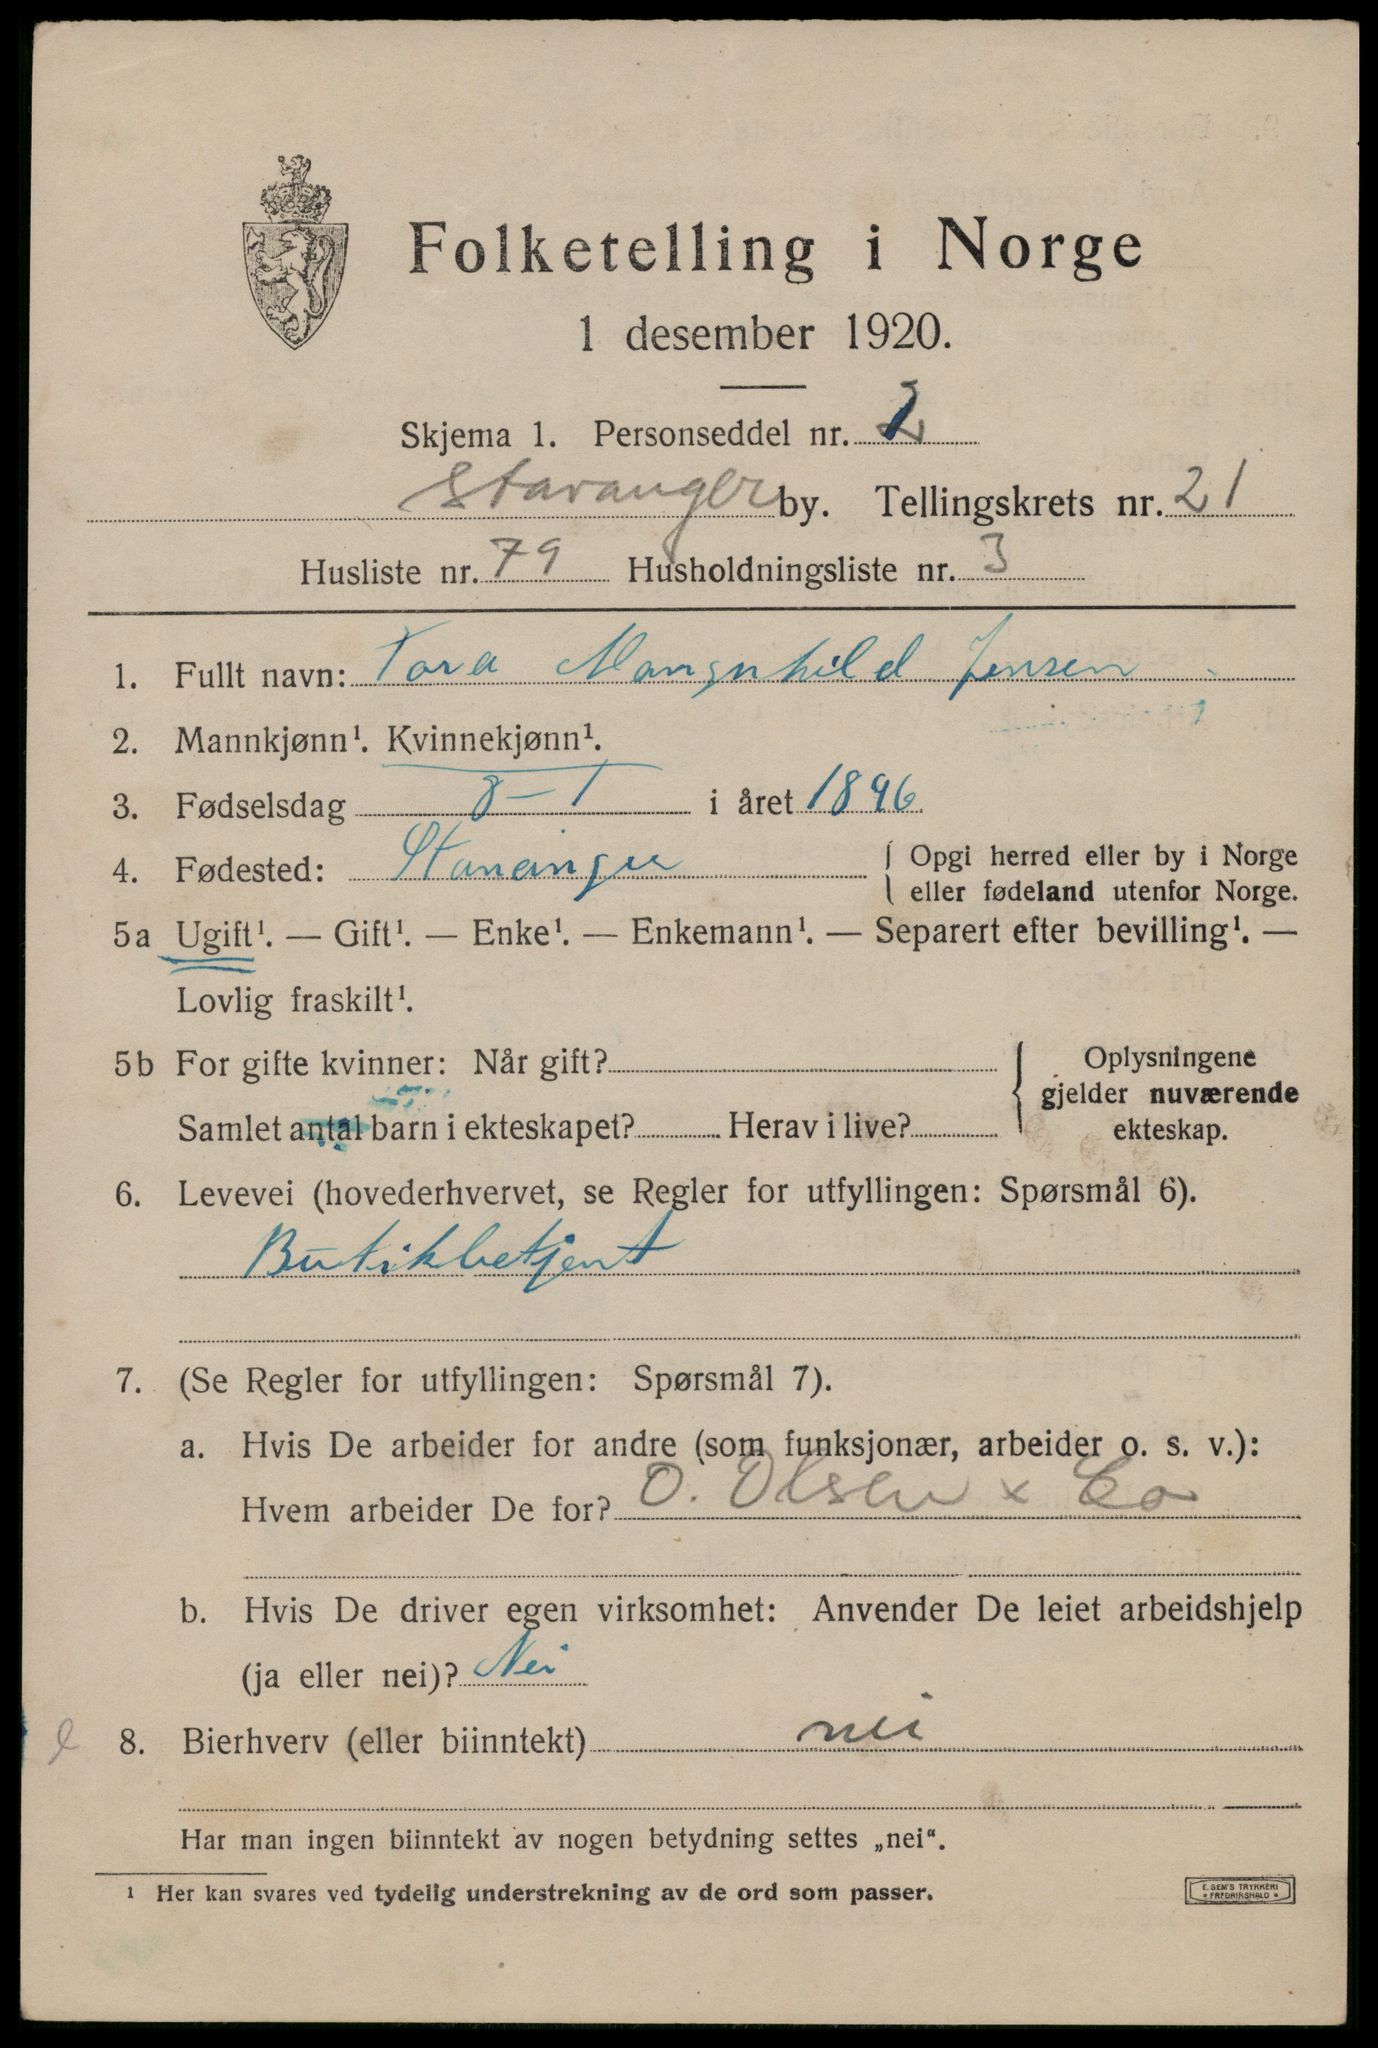 Folketelling i Norge
1 desember 1920.
Skjema 1. Personseddel nr. 2
Stavanger by. Tellingskrets nr. 21
Husliste nr. 79 Husholdningsliste nr. 3
1. Fullt navn: Tora Mangnhild Jensen
2. Mannkjønn¹. Kvinnekjønn¹.
3. Fødselsdag 8-1 i året 1896
4. Fødested: Stavanger { Opgi herred eller by i Norge
eller fødeland utenfor Norge.
5a Ugift¹. — Gift¹. — Enke¹. — Enkemann¹. — Separert efter bevilling¹. —
Lovlig fraskilt¹.
5b For gifte kvinner: Når gift?
Samlet antal barn i ekteskapet? Herav i live?
Oplysningene
gjelder nuværende
ekteskap.
6. Levevei (hovederhvervet, se Regler for utfyllingen: Spørsmål 6).
Butikbetjent
7. (Se Regler for utfyllingen: Spørsmål 7).
a. Hvis De arbeider for andre (som funksjonær, arbeider o. s. v.):
Hvem arbeider De for? O. Olsen x Co
b. Hvis De driver egen virksomhet: Anvender De leiet arbeidshjelp
(ja eller nei)? Nei
8. Bierhverv (eller biinntekt) nei
Har man ingen biinntekt av nogen betydning settes „nei“.
¹ Her kan svares ved tydelig understrekning av de ord som passer.
E. SEM'S TRYKKERI
• FREDRIKSHALD •